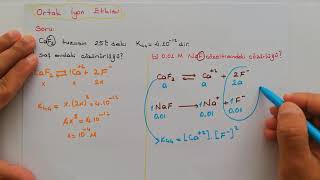 Ortak İyon Etkisi
Soru:
CaF₂ tuzunun 25℃ daki Kçç = 4.10⁻¹² dir.
Saf sudaki çözünürlüğü?
CaF₂ ⇌ Ca⁺² + 2F⁻
x x 2x
Kçç = x.(2x)² = 4.10⁻¹²
4x³ = 4.10⁻¹²
x = 10⁻⁴ M
b) 0.01 M NaF çözeltisindeki çözünürlüğü?
CaF₂ ⇌ Ca⁺² + 2F⁻
a a 2a
1NaF → 1Na⁺ + 1F⁻
0.01 0.01 0.01
Kçç = [Ca⁺²].[F⁻]²